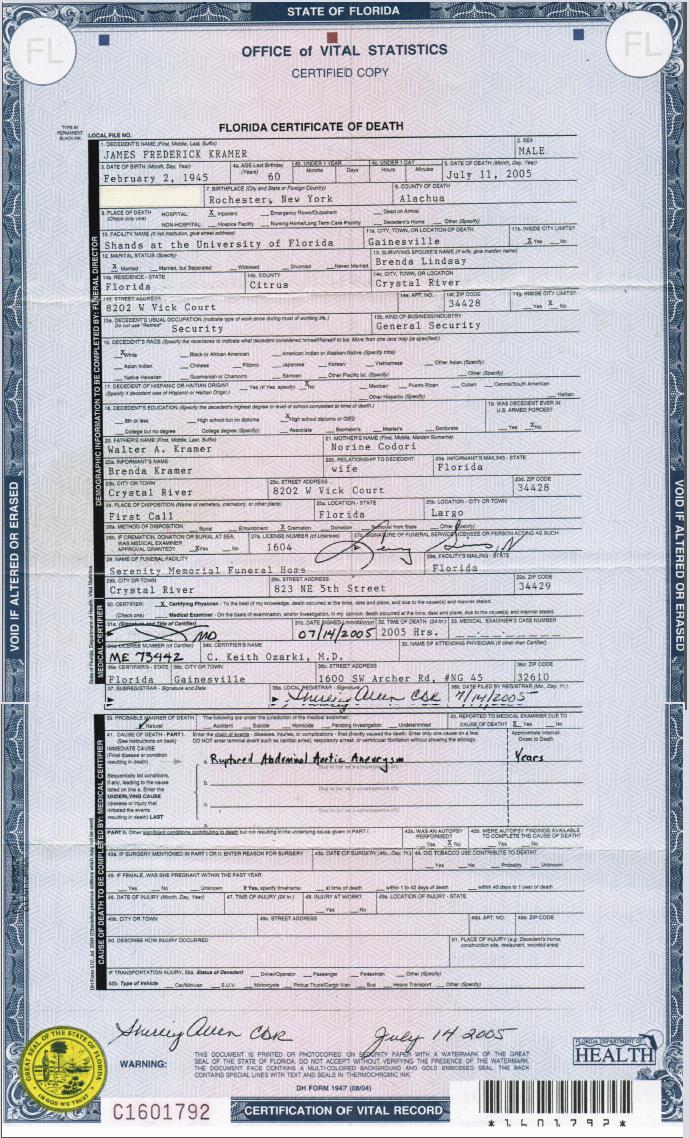 STATE OF FLORIDA
FL
FL
OFFICE of VITAL STATISTICS
CERTIFIED COPY
TYPE IN PERMANENT BLACK INK
FLORIDA CERTIFICATE OF DEATH
LOCAL FILE NO.
1. DECEDENT'S NAME (First, Middle, Last, Suffix) 2. SEX
JAMES FREDERICK KRAMER MALE
3. DATE OF BIRTH (Month, Day, Year) 4a. AGE-Last Birthday (Years) 4b. UNDER 1 YEAR Months Days 4c. UNDER 1 DAY Hours Minutes 5. DATE OF DEATH (Month, Day, Year)
February 2, 1945 60 July 11, 2005
7. BIRTHPLACE (City and State or Foreign Country) 8. COUNTY OF DEATH
Rochester, New York Alachua
9. PLACE OF DEATH (Check only one) HOSPITAL: X Inpatient Emergency Room/Outpatient Dead on Arrival
NON-HOSPITAL: Hospice Facility Nursing Home/Long Term Care Facility Decedent's Home Other (Specify)
10. FACILITY NAME (If not institution, give street address) 11a. CITY, TOWN, OR LOCATION OF DEATH 11b. INSIDE CITY LIMITS?
Shands at the University of Florida Gainesville X Yes No
12. MARITAL STATUS (Specify) 13. SURVIVING SPOUSE'S NAME (If wife, give maiden name)
X Married Married, but Separated Widowed Divorced Never Married Brenda Lindsay
14a. RESIDENCE - STATE 14b. COUNTY 14c. CITY, TOWN, OR LOCATION
Florida Citrus Crystal River
14d. STREET ADDRESS 14e. APT. NO. 14f. ZIP CODE 14g. INSIDE CITY LIMITS?
8202 W Vick Court 34428 Yes X No
15a. DECEDENT'S USUAL OCCUPATION (Indicate type of work done during most of working life.) 15b. KIND OF BUSINESS/INDUSTRY
Do not use "Retired" Security General Security
16. DECEDENT'S RACE (Specify the race/races to indicate what decedent considered himself/herself to be. More than one race may be specified.)
X White Black or African American American Indian or Alaskan Native (Specify tribe)
Asian Indian Chinese Filipino Japanese Korean Vietnamese Other Asian (Specify)
Native Hawaiian Guamanian or Chamorro Samoan Other Pacific Isl. (Specify) Other (Specify)
17. DECEDENT OF HISPANIC OR HAITIAN ORIGIN? Yes (If Yes, specify) X No Mexican Puerto Rican Cuban Central/South American
(Specify if decedent was of Hispanic or Haitian Origin.) Other Hispanic (Specify) Haitian
18. DECEDENT'S EDUCATION (Specify the decedent's highest degree or level of school completed at time of death.) 19. WAS DECEDENT EVER IN U.S. ARMED FORCES?
8th or less High school but no diploma X High school diploma or GED
College but no degree College degree (Specify): Associate Bachelor's Master's Doctorate Yes X No
20. FATHER'S NAME (First, Middle, Last, Suffix) 21. MOTHER'S NAME (First, Middle, Maiden Surname)
Walter A. Kramer Norine Codori
22a. INFORMANT'S NAME 22b. RELATIONSHIP TO DECEDENT 23a. INFORMANT'S MAILING - STATE
Brenda Kramer wife Florida
23b. CITY OR TOWN 23c. STREET ADDRESS 23d. ZIP CODE
Crystal River 8202 W Vick Court 34428
24. PLACE OF DISPOSITION (Name of cemetery, crematory, or other place) 25a. LOCATION - STATE 25b. LOCATION - CITY OR TOWN
First Call Florida Largo
26a. METHOD OF DISPOSITION Burial Entombment X Cremation Donation Removal from State Other (Specify)
26b. IF CREMATION, DONATION OR BURIAL AT SEA, WAS MEDICAL EXAMINER APPROVAL GRANTED? X Yes No 27a. LICENSE NUMBER (of Licensee) 27b. SIGNATURE OF FUNERAL SERVICE LICENSEE OR PERSON ACTING AS SUCH
1604
28. NAME OF FUNERAL FACILITY 29a. FACILITY'S MAILING - STATE
Serenity Memorial Funeral Home Florida
29b. CITY OR TOWN 29c. STREET ADDRESS 29d. ZIP CODE
Crystal River 823 NE 5th Street 34429
30. CERTIFIER: X Certifying Physician - To the best of my knowledge, death occurred at the time, date and place, and due to the cause(s) and manner stated.
(Check one) Medical Examiner - On the basis of examination, and/or investigation, in my opinion, death occurred at the time, date and place, due to the cause(s) and manner stated.
31a. (Signature and Title of Certifier) 31b. DATE SIGNED (mm/dd/yyyy) 32. TIME OF DEATH (24 hr.) 33. MEDICAL EXAMINER'S CASE NUMBER
MD 07/14/2005 2005 Hrs.
34a. LICENSE NUMBER (of Certifier) 34b. CERTIFIER'S NAME 35. NAME OF ATTENDING PHYSICIAN (If other than Certifier)
ME 73442 C. Keith Ozarki, M.D.
36a. CERTIFIER'S - STATE 36b. CITY OR TOWN 36c. STREET ADDRESS 36d. ZIP CODE
Florida Gainesville 1600 SW Archer Rd, #NG 45 32610
37. SUBREGISTRAR - Signature and Date 38a. LOCAL REGISTRAR - Signature 38b. DATE FILED BY REGISTRAR (Mo., Day, Yr.)
Shirley Allen CDR 7/14/2005
39. PROBABLE MANNER OF DEATH The following are under the jurisdiction of the medical examiner: 40. REPORTED TO MEDICAL EXAMINER DUE TO CAUSE OF DEATH? X Yes No
Natural Accident Suicide Homicide Pending Investigation Undetermined
41. CAUSE OF DEATH - PART I. Enter the chain of events - diseases, injuries, or complications - that directly caused the death. Enter only one cause on a line. Approximate Interval: Onset to Death
(See instructions on back) DO NOT enter terminal event such as cardiac arrest, respiratory arrest, or ventricular fibrillation without showing the etiology.
IMMEDIATE CAUSE (Final disease or condition resulting in death) a. Ruptured Abdominal Aortic Aneurysm Years
Due to (or as a consequence of):
Sequentially list conditions, if any, leading to the cause listed on line a. Enter the UNDERLYING CAUSE (disease or injury that initiated the events resulting in death) LAST
b.
Due to (or as a consequence of):
c.
Due to (or as a consequence of):
d.
PART II. Other significant conditions contributing to death but not resulting in the underlying cause given in PART I. 42a. WAS AN AUTOPSY PERFORMED? Yes X No 42b. WERE AUTOPSY FINDINGS AVAILABLE TO COMPLETE THE CAUSE OF DEATH? Yes No
43a. IF SURGERY MENTIONED IN PART I OR II, ENTER REASON FOR SURGERY 43b. DATE OF SURGERY (Mo., Day, Yr.) 44. DID TOBACCO USE CONTRIBUTE TO DEATH?
Yes No Probably Unknown
45. IF FEMALE, WAS SHE PREGNANT WITHIN THE PAST YEAR:
Yes No Unknown If Yes, specify timeframe: at time of death within 1 to 42 days of death within 43 days to 1 year of death
46. DATE OF INJURY (Month, Day, Year) 47. TIME OF INJURY (24 hr.) 48. INJURY AT WORK? Yes No 49a. LOCATION OF INJURY - STATE
49b. CITY OR TOWN 49c. STREET ADDRESS 49d. APT. NO. 49e. ZIP CODE
50. DESCRIBE HOW INJURY OCCURRED 51. PLACE OF INJURY (e.g. Decedent's home, construction site, restaurant, wooded area)
IF TRANSPORTATION INJURY, 52a. Status of Decedent Driver/Operator Passenger Pedestrian Other (Specify)
52b. Type of Vehicle Car/Minivan S.U.V. Motorcycle Pickup Truck/Cargo Van Bus Heavy Transport Other (Specify)
DEMOGRAPHIC INFORMATION TO BE COMPLETED BY: FUNERAL DIRECTOR
MEDICAL CERTIFIER
CAUSE OF DEATH TO BE COMPLETED BY: MEDICAL CERTIFIER
State of Florida, Department of Health, Vital Statistics
DH Form 512, Jul. 2004 (Obsoletes previous editions which may not be used)
VOID IF ALTERED OR ERASED
VOID IF ALTERED OR ERASED
Shirley Allen CDR July 14 2005
WARNING: THIS DOCUMENT IS PRINTED OR PHOTOCOPIED ON SECURITY PAPER WITH A WATERMARK OF THE GREAT
SEAL OF THE STATE OF FLORIDA. DO NOT ACCEPT WITHOUT VERIFYING THE PRESENCE OF THE WATERMARK.
THE DOCUMENT FACE CONTAINS A MULTI-COLORED BACKGROUND AND GOLD EMBOSSED SEAL. THE BACK
CONTAINS SPECIAL LINES WITH TEXT AND SEALS IN THERMOCHROMIC INK.
DH FORM 1947 (08/04)
FLORIDA DEPARTMENT OF
HEALTH
GREAT SEAL OF THE STATE OF FLORIDA
IN GOD WE TRUST
C1601792
CERTIFICATION OF VITAL RECORD
*1601792*